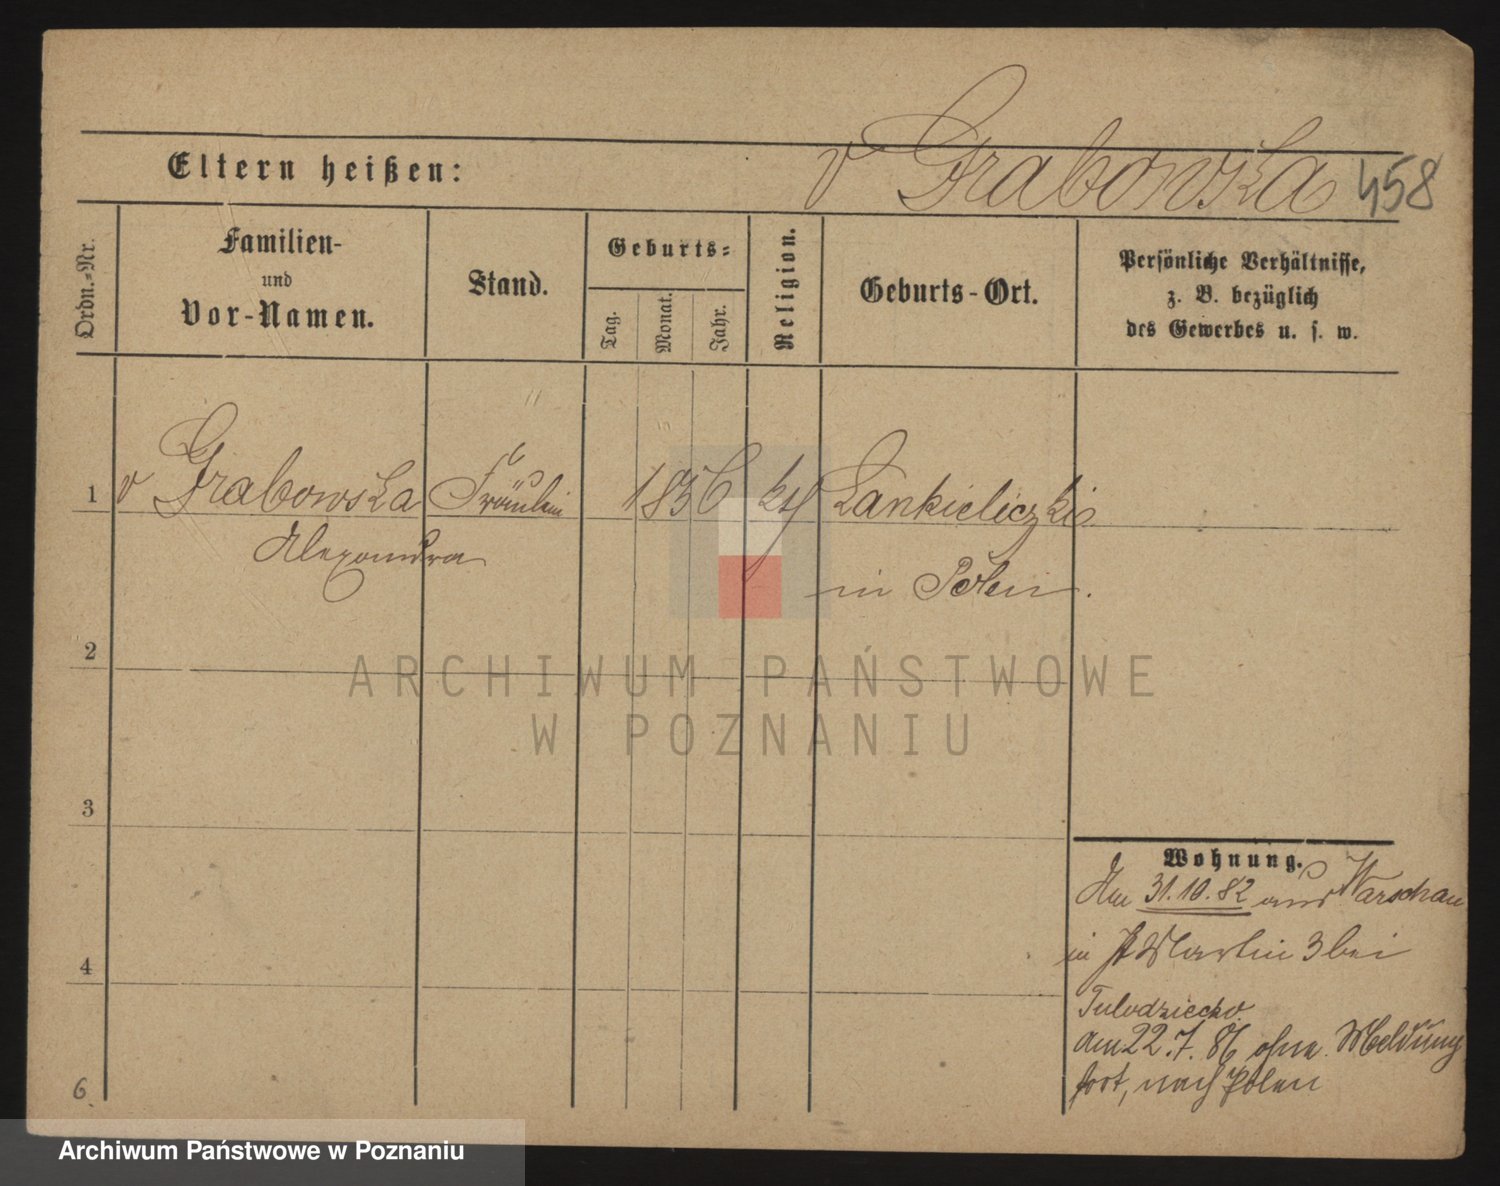 v Grabowska 458
Eltern heißen:
Ordn.-Nr.
Familien-
und
Vor-Namen.
Stand.
Geburts-
Tag.
Monat.
Jahr.
Religion.
Geburts-Ort.
Persönliche Verhältnisse,
z. B. bezüglich
des Gewerbes u. s. w.
1 v Grabowska Fräulein 1856 kth Lankieliczkis
Alexandra in Polen.
2
ARCHIWUM PAŃSTWOWE
W POZNANIU
3
Wohnung.
Am 31.10.82 aus Warschau
in St Martin 3 bei
4
Tulodziecka.
am 22.7.86 ohne Meldung
fort, nach Polen
6
Archiwum Państwowe w Poznaniu